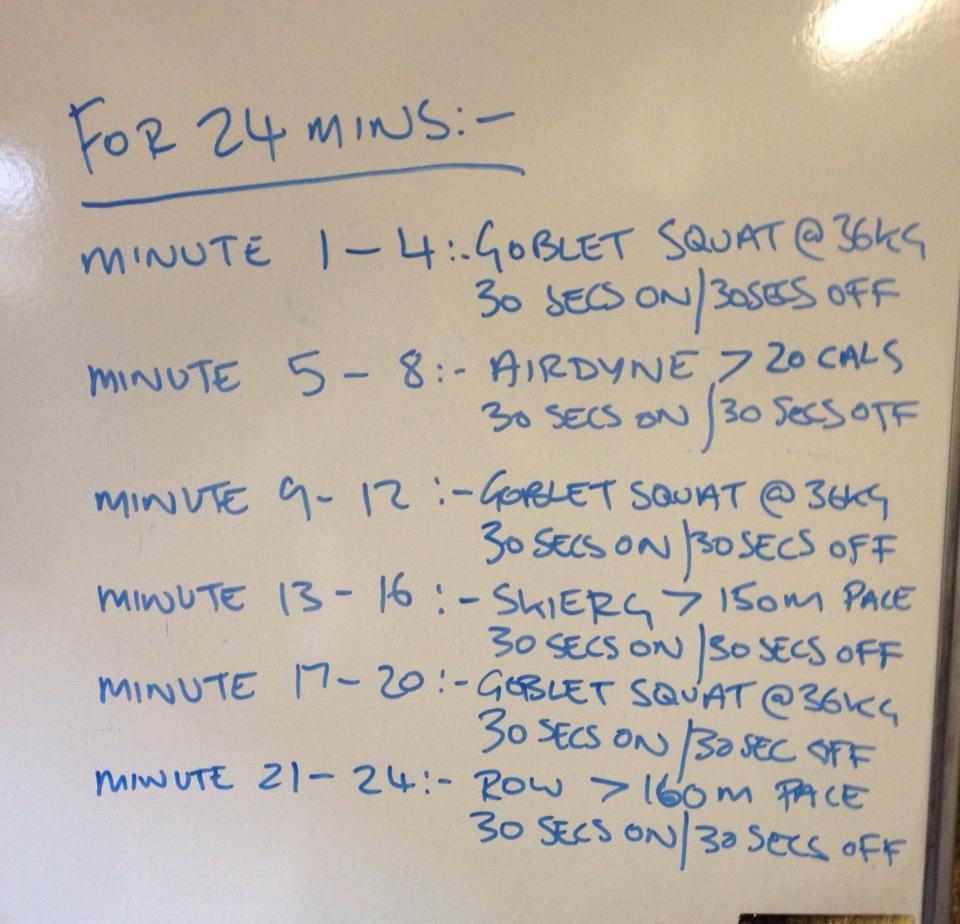 FOR 24 MINS:-
MINUTE 1-4:- GOBLET SQUAT @ 36KG
30 SECS ON/30SECS OFF
MINUTE 5-8:- AIRDYNE > 20 CALS
30 SECS ON/30 SECS OFF
MINUTE 9-12:- GOBLET SQUAT @ 36KG
30 SECS ON/30 SECS OFF
MINUTE 13-16:- SKIERG > 150M PACE
30 SECS ON/30 SECS OFF
MINUTE 17-20:- GOBLET SQUAT @ 36KG
30 SECS ON/30 SEC OFF
MINUTE 21-24:- ROW > 160M PACE
30 SECS ON/30 SECS OFF